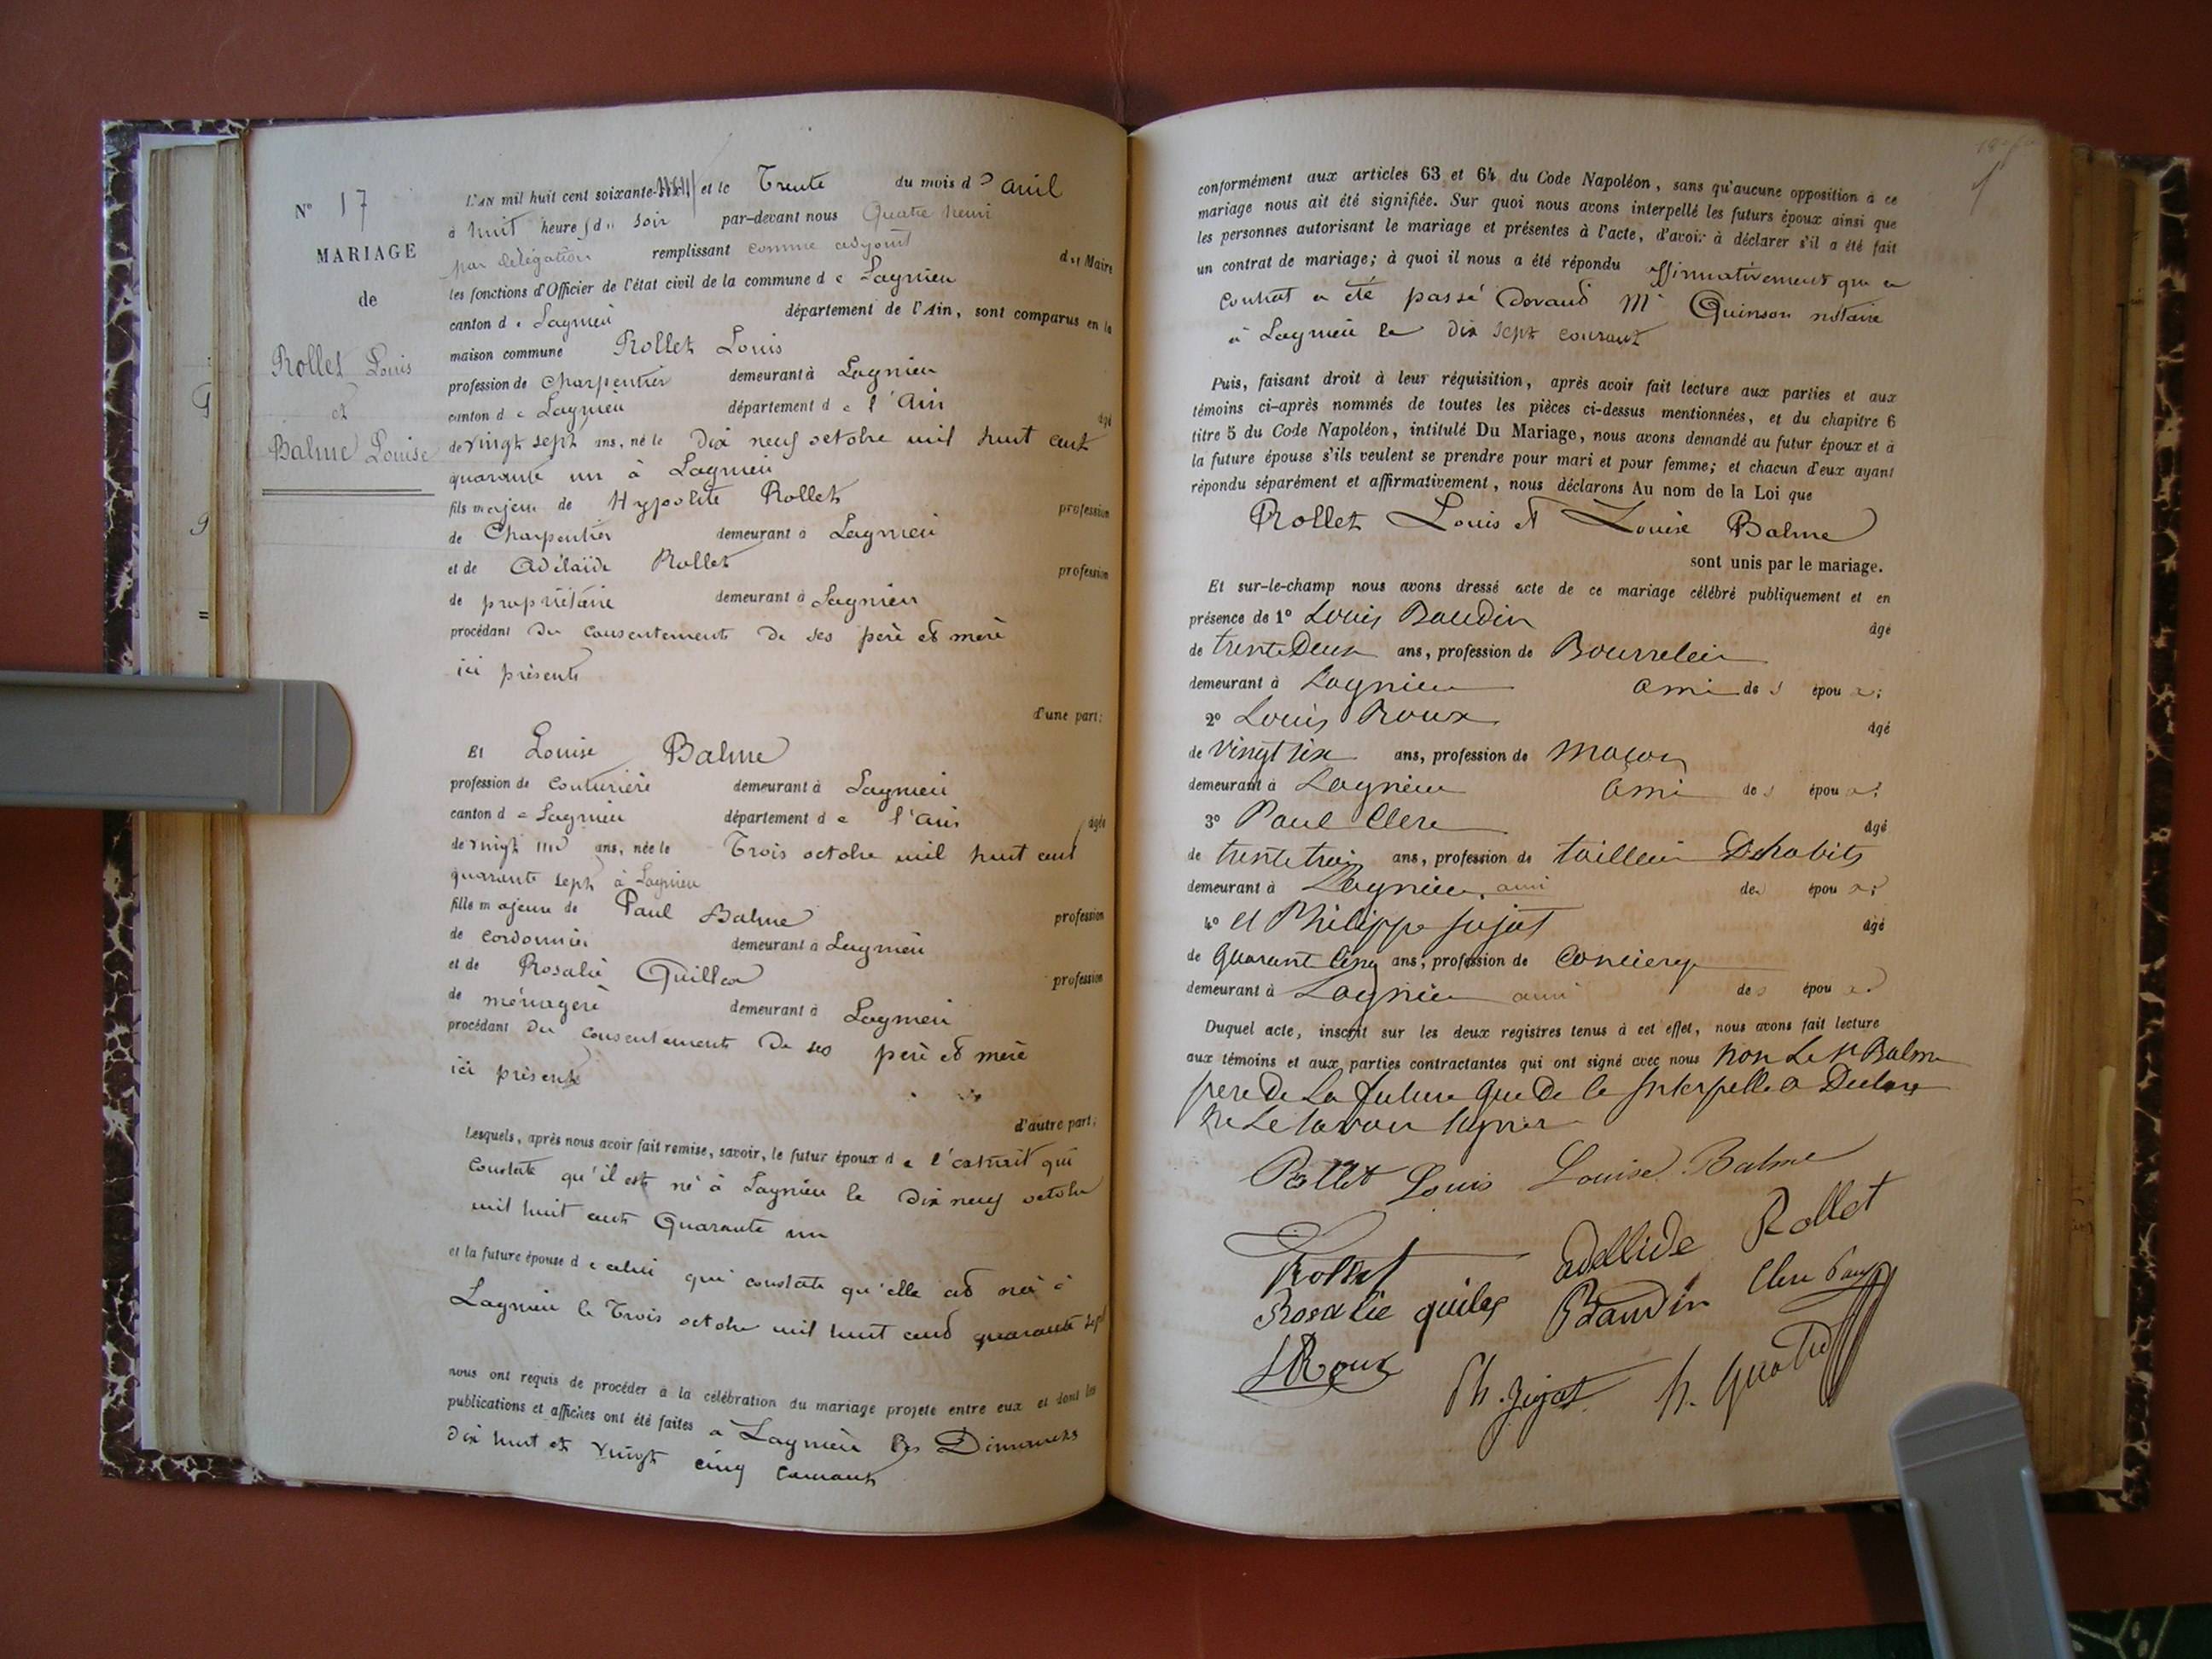 N° 17
MARIAGE
de
Rollet Louis
et
Balme Louise
L'AN mil huit cent soixante et le Trente du mois d' avril
à huit heures du soir par-devant nous Quatre henri
par délégation remplissant comme adjoint du Maire
les fonctions d'Officier de l'état civil de la commune de Lagnieu
canton de Lagnieu département de l'Ain, sont comparus en la
maison commune Rollet Louis
profession de Charpentier demeurant à Lagnieu
canton de Lagnieu département de l'Ain âgé
de vingt sept ans, né le Dix neuf octobre mil huit cent
quarante un à Lagnieu
fils majeur de Hypolite Rollet profession
de Charpentier demeurant à Lagnieu
et de Adélaïde Rollet profession
de propriétaire demeurant à Lagnieu
procédant du consentement de ses père et mère
ici présents
d'une part;
Et Louise Balme
profession de Couturière demeurant à Lagnieu
canton de Lagnieu département de l'Ain âgée
de vingt un ans, née le Trois octobre mil huit cent
quarante sept à Lagnieu
fille majeure de Paul Balme profession
de cordonnier demeurant à Lagnieu
et de Rosalie Quiller profession
de ménagère demeurant à Lagnieu
procédant du consentement de ses père et mère
ici présents
d'autre part;
Lesquels, après nous avoir fait remise, savoir, le futur époux de l'extrait qui
constate qu'il est né à Lagnieu le dix neuf octobre
mil huit cent Quarante un
et la future épouse de celui qui constate qu'elle est née à
Lagnieu le Trois octobre mil huit cent quarante sept
nous ont requis de procéder à la célébration du mariage projeté entre eux et dont les
publications et affiches ont été faites à Lagnieu les Dimanches
dix huit et vingt cinq courant
conformément aux articles 63 et 64 du Code Napoléon, sans qu'aucune opposition à ce
mariage nous ait été signifiée. Sur quoi nous avons interpellé les futurs époux ainsi que
les personnes autorisant le mariage et présentes à l'acte, d'avoir à déclarer s'il a été fait
un contrat de mariage; à quoi il nous a été répondu affirmativement que ce
contrat a été passé devant Me Quinson notaire
à Lagnieu le dix sept courant
Puis, faisant droit à leur réquisition, après avoir fait lecture aux parties et aux
témoins ci-après nommés de toutes les pièces ci-dessus mentionnées, et du chapitre 6
titre 5 du Code Napoléon, intitulé Du Mariage, nous avons demandé au futur époux et à
la future épouse s'ils veulent se prendre pour mari et pour femme; et chacun d'eux ayant
répondu séparément et affirmativement, nous déclarons Au nom de la Loi que
Rollet Louis et Louise Balme
sont unis par le mariage.
Et sur-le-champ nous avons dressé acte de ce mariage célébré publiquement et en
présence de 1° Louis Baudin âgé
de trente Deux ans, profession de Bourrelier
demeurant à Lagnieu ami des époux;
2° Louis Roux âgé
de vingt six ans, profession de maçon
demeurant à Lagnieu ami des époux;
3° Paul Clerc âgé
de trente trois ans, profession de tailleur D'habits
demeurant à Lagnieu, ami des époux;
4° et Philippe Jujat âgé
de Quarante Cinq ans, profession de Concierge
demeurant à Lagnieu ami des époux.
Duquel acte, inscrit sur les deux registres tenus à cet effet, nous avons fait lecture
aux témoins et aux parties contractantes qui ont signé avec nous non Le sr Balme
pere De La future que De ce Interpellé a Declaré
ne Le savoir signer
Rollet Louis Louise Balme
Rollet adellide Rollet
Rosalie quiler Baudin Clerc Paul
LRoux Ph. Jujat h. Quatre